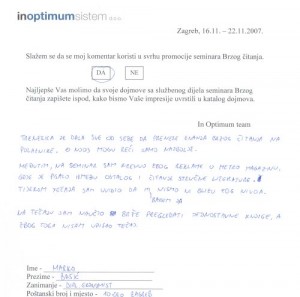 inoptimumsistem d.o.o.
Zagreb, 16.11. – 22.11.2007.
Slažem se da se moj komentar koristi u svrhu promocije seminara Brzog čitanja.
DA NE
Najljepše Vas molimo da svoje dojmove sa službenog dijela seminara Brzog
čitanja zapišete ispod, kako bismo Vaše impresije uvrstili u katalog dojmova.
In Optimum team
JE DALA SVE OD SEBE DA PRENESE ZNANJA BRZOG ČITANJA NA
POLAZNIKE. O NJOJ MOGU REĆI SAMO NAJBOLJE.
MEĐUTIM, NA SEMINAR SAM KRENUO ZBOG REKLAME U METRO MAGAZINU,
GDJE JE PISALO I ČITANJE STRUČNE LITERATURE.
TIJEKOM TEČAJA SAM UVIDIO DA NISMO NI BLIZU TOG NIVOA.
BAREM JA
NA TEČAJ SAM NAUČIO BRŽE PREGLEDATI JEDNOSTAVNE KNJIGE, A
ZBOG TOGA NISAM UPISAO TEČAJ.
Ime - MARKO
Prezime -
Zanimanje -
Poštanski broj i mjesto - 10000 ZAGREB